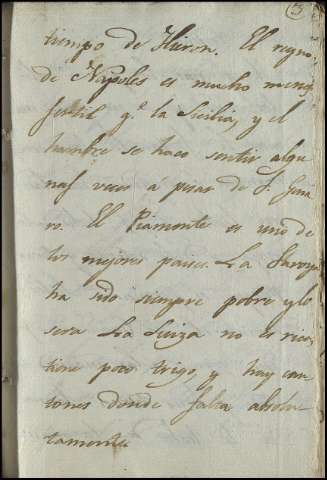 3
tiempo de Hieron. El reyno
de Napoles es mucho menos
fertil q.e la Sicilia, y el
hambre se hace sentir algu
nas veces á pesar de S. Gena
ro. El Piamonte es uno de
los mejores paises. La Savoya
ha sido siempre pobre y lo
sera La Suiza no es rica,
tiene poco trigo, y hay can
tones donde falta absolu
tamente